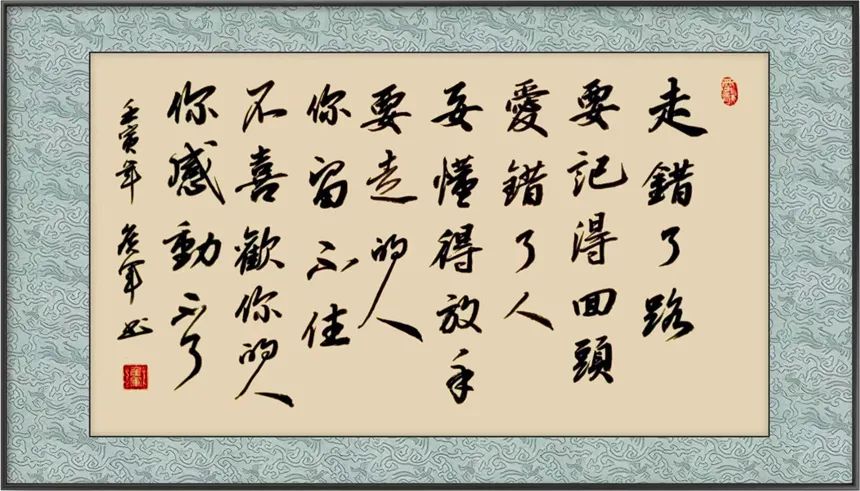 走錯了路
要記得回頭
愛錯了人
要懂得放手
要走的人
你留不住
不喜歡你的人
你感動不了
壬寅年 书